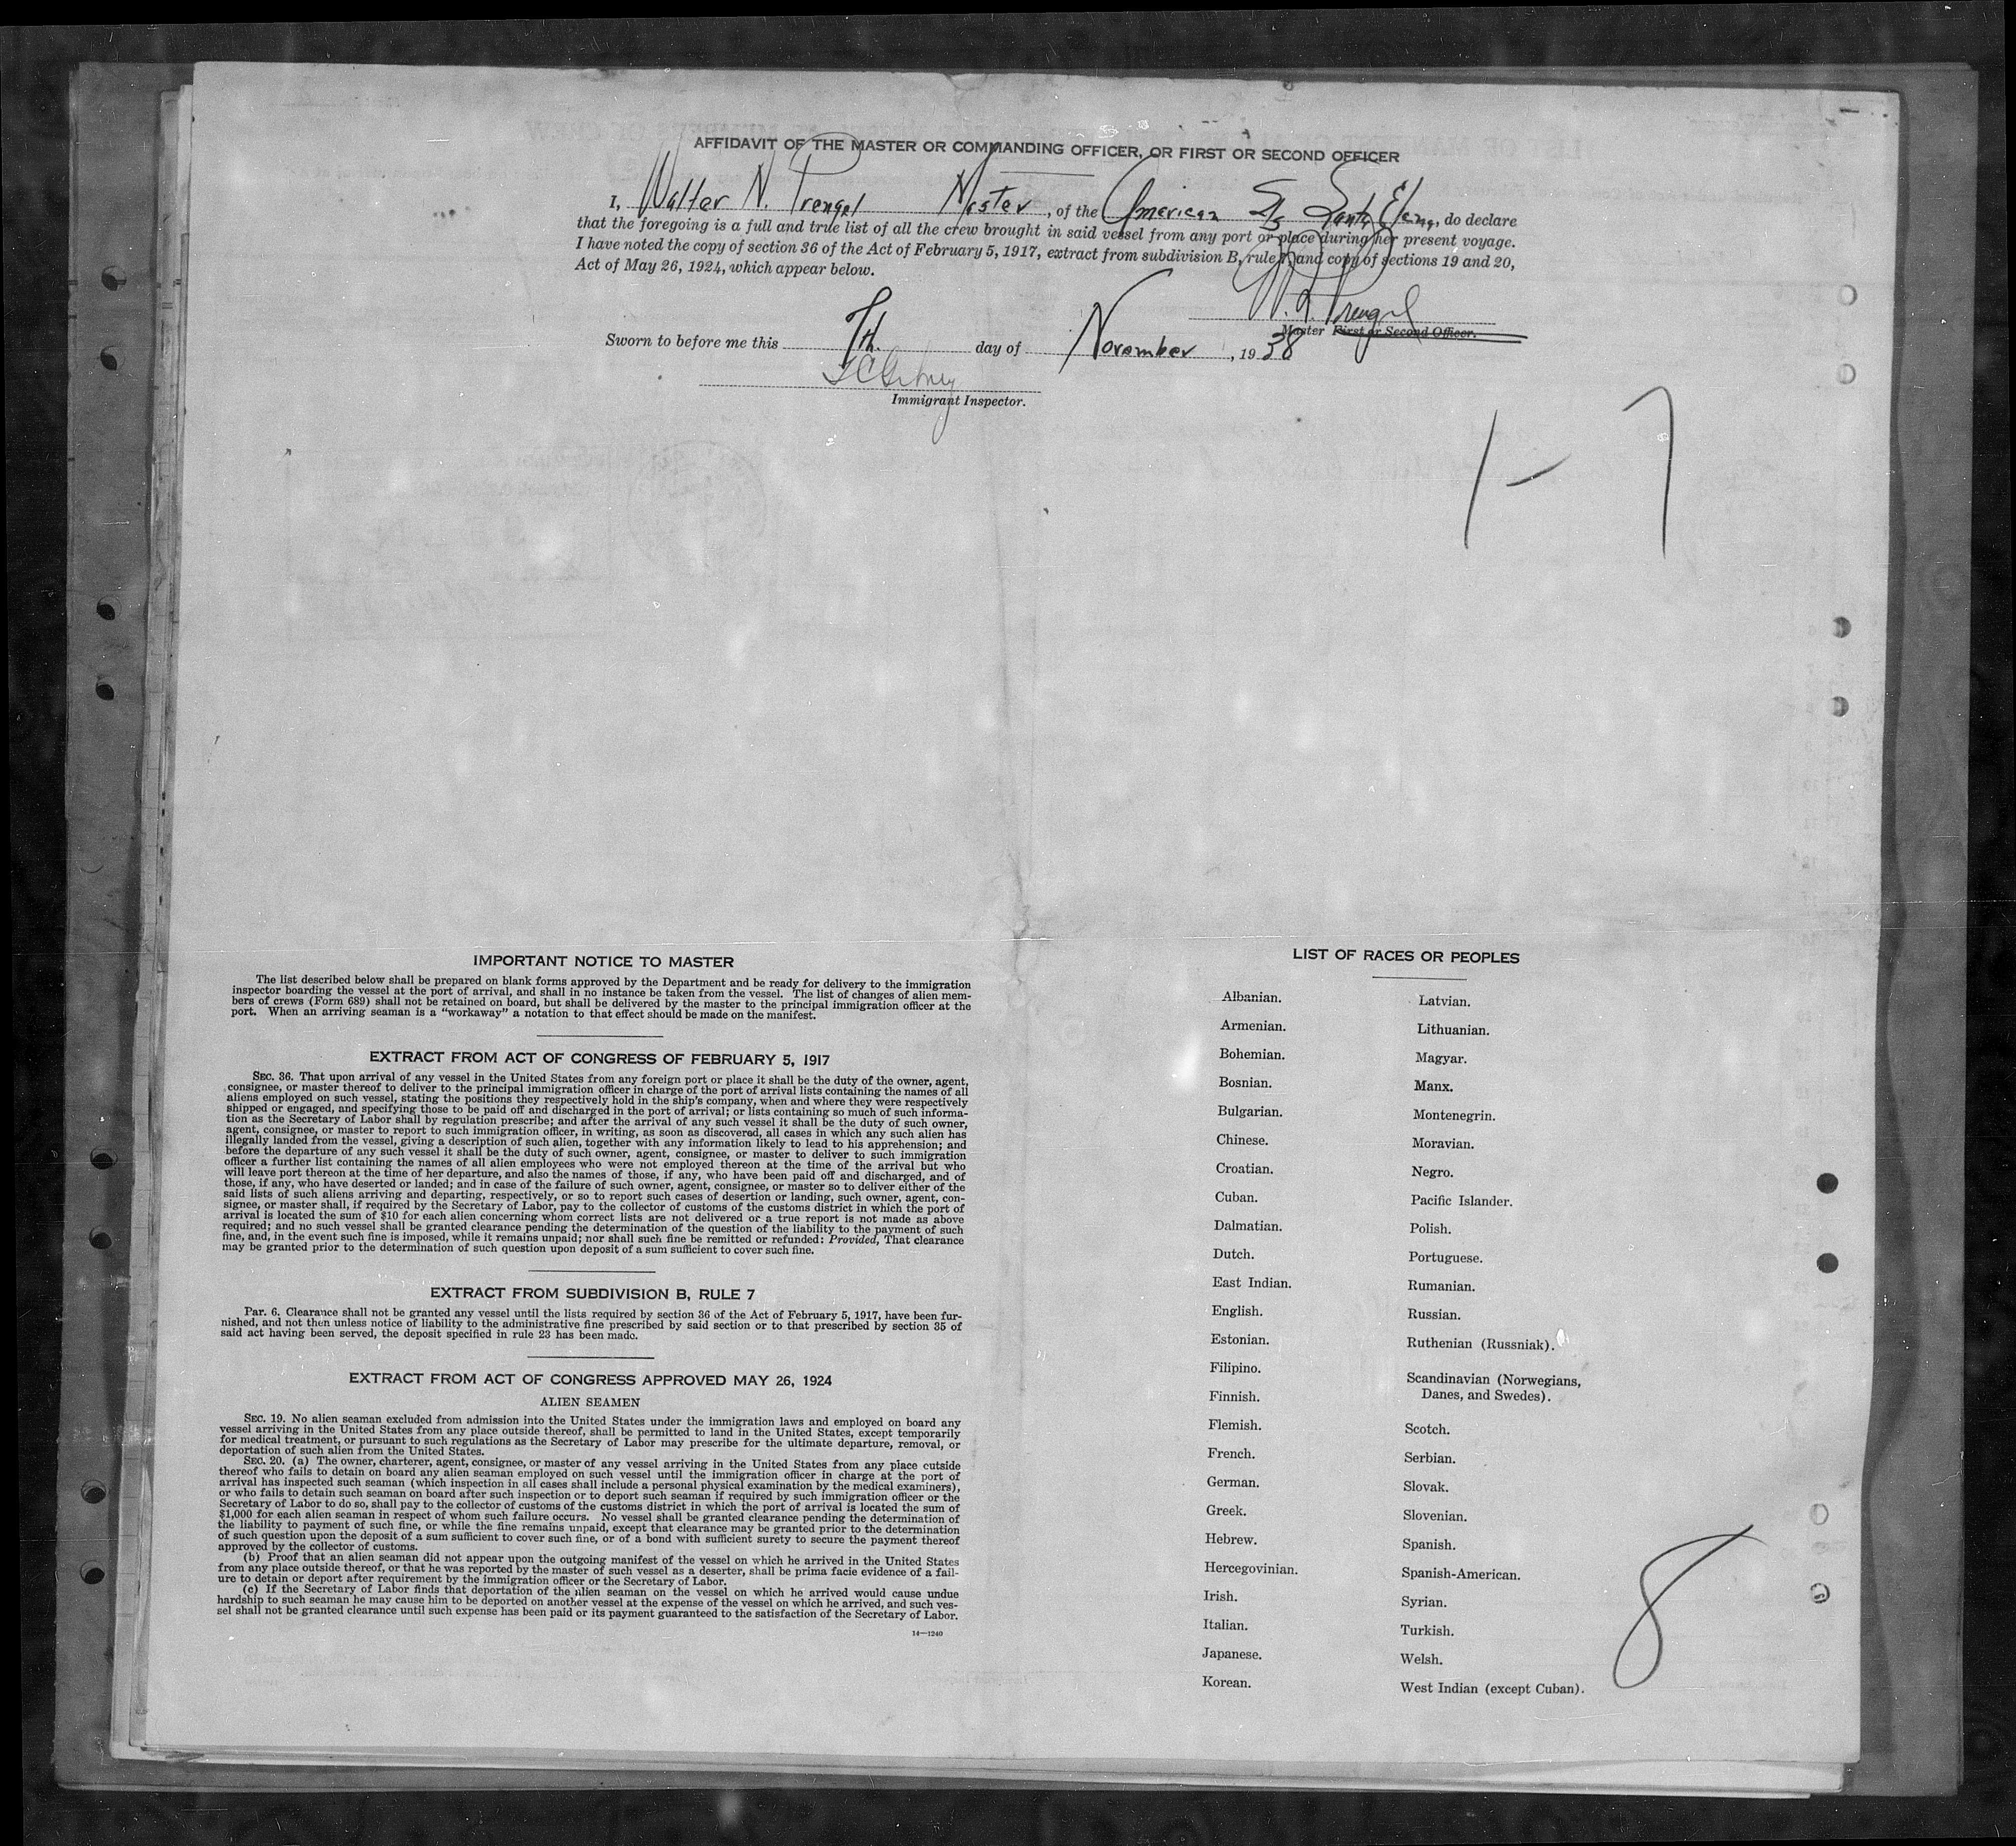 AFFIDAVIT OF THE MASTER OR COMMANDING OFFICER, OR FIRST OR SECOND OFFICER
I, Walter N. Prengel Master, of the American S/s Santa Elena, do declare
that the foregoing is a full and true list of all the crew brought in said vessel from any port or place during her present voyage.
I have noted the copy of section 36 of the Act of February 5, 1917, extract from subdivision B, rule 7, and copy of sections 19 and 20,
Act of May 26, 1924, which appear below.
Prengel
Master First or Second Officer.
Sworn to before me this 7th day of November, 1938
Immigrant Inspector.
1-7
IMPORTANT NOTICE TO MASTER
The list described below shall be prepared on blank forms approved by the Department and be ready for delivery to the immigration
inspector boarding the vessel at the port of arrival, and shall in no instance be taken from the vessel. The list of changes of alien mem-
bers of crews (Form 689) shall not be retained on board, but shall be delivered by the master to the principal immigration officer at the
port. When an arriving seaman is a "workaway" a notation to that effect should be made on the manifest.
EXTRACT FROM ACT OF CONGRESS OF FEBRUARY 5, 1917
SEC. 36. That upon arrival of any vessel in the United States from any foreign port or place it shall be the duty of the owner, agent,
consignee, or master thereof to deliver to the principal immigration officer in charge of the port of arrival lists containing the names of all
aliens employed on such vessel, stating the positions they respectively hold in the ship's company, when and where they were respectively
shipped or engaged, and specifying those to be paid off and discharged in the port of arrival; or lists containing so much of such informa-
tion as the Secretary of Labor shall by regulation prescribe; and after the arrival of any such vessel it shall be the duty of such owner,
agent, consignee, or master to report to such immigration officer, in writing, as soon as discovered, all cases in which any such alien has
illegally landed from the vessel, giving a description of such alien, together with any information likely to lead to his apprehension; and
before the departure of any such vessel it shall be the duty of such owner, agent, consignee, or master to deliver to such immigration
officer a further list containing the names of all alien employees who were not employed thereon at the time of the arrival but who
will leave port thereon at the time of her departure, and also the names of those, if any, who have been paid off and discharged, and of
those, if any, who have deserted or landed; and in case of the failure of such owner, agent, consignee, or master so to deliver either of the
said lists of such aliens arriving and departing, respectively, or so to report such cases of desertion or landing, such owner, agent, con-
signee, or master shall, if required by the Secretary of Labor, pay to the collector of customs of the customs district in which the port of
arrival is located the sum of $10 for each alien concerning whom correct lists are not delivered or a true report is not made as above
required; and no such vessel shall be granted clearance pending the determination of the question of the liability to the payment of such
fine, and, in the event such fine is imposed, while it remains unpaid; nor shall such fine be remitted or refunded: Provided, That clearance
may be granted prior to the determination of such question upon deposit of a sum sufficient to cover such fine.
EXTRACT FROM SUBDIVISION B, RULE 7
Par. 6. Clearance shall not be granted any vessel until the lists required by section 36 of the Act of February 5, 1917, have been fur-
nished, and not then unless notice of liability to the administrative fine prescribed by said section or to that prescribed by section 35 of
said act having been served, the deposit specified in rule 23 has been made.
EXTRACT FROM ACT OF CONGRESS APPROVED MAY 26, 1924
ALIEN SEAMEN
SEC. 19. No alien seaman excluded from admission into the United States under the immigration laws and employed on board any
vessel arriving in the United States from any place outside thereof, shall be permitted to land in the United States, except temporarily
for medical treatment, or pursuant to such regulations as the Secretary of Labor may prescribe for the ultimate departure, removal, or
deportation of such alien from the United States.
SEC. 20. (a) The owner, charterer, agent, consignee, or master of any vessel arriving in the United States from any place outside
thereof who fails to detain on board any alien seaman employed on such vessel until the immigration officer in charge at the port of
arrival has inspected such seaman (which inspection in all cases shall include a personal physical examination by the medical examiners),
or who fails to detain such seaman on board after such inspection or to deport such seaman if required by such immigration officer or the
Secretary of Labor to do so, shall pay to the collector of customs of the customs district in which the port of arrival is located the sum of
$1,000 for each alien seaman in respect of whom such failure occurs. No vessel shall be granted clearance pending the determination of
the liability to payment of such fine, or while the fine remains unpaid, except that clearance may be granted prior to the determination
of such question upon the deposit of a sum sufficient to cover such fine, or of a bond with sufficient surety to secure the payment thereof
approved by the collector of customs.
(b) Proof that an alien seaman did not appear upon the outgoing manifest of the vessel on which he arrived in the United States
from any place outside thereof, or that he was reported by the master of such vessel as a deserter, shall be prima facie evidence of a fail-
ure to detain or deport after requirement by the immigration officer or the Secretary of Labor.
(c) If the Secretary of Labor finds that deportation of the alien seaman on the vessel on which he arrived would cause undue
hardship to such seaman he may cause him to be deported on another vessel at the expense of the vessel on which he arrived, and such ves-
sel shall not be granted clearance until such expense has been paid or its payment guaranteed to the satisfaction of the Secretary of Labor.
14—1240
LIST OF RACES OR PEOPLES
Albanian.
Armenian.
Bohemian.
Bosnian.
Bulgarian.
Chinese.
Croatian.
Cuban.
Dalmatian.
Dutch.
East Indian.
English.
Estonian.
Filipino.
Finnish.
Flemish.
French.
German.
Greek.
Hebrew.
Hercegovinian.
Irish.
Italian.
Japanese.
Korean.
Latvian.
Lithuanian.
Magyar.
Manx.
Montenegrin.
Moravian.
Negro.
Pacific Islander.
Polish.
Portuguese.
Rumanian.
Russian.
Ruthenian (Russniak).
Scandinavian (Norwegians,
Danes, and Swedes).
Scotch.
Serbian.
Slovak.
Slovenian.
Spanish.
Spanish-American.
Syrian.
Turkish.
Welsh.
West Indian (except Cuban).
8